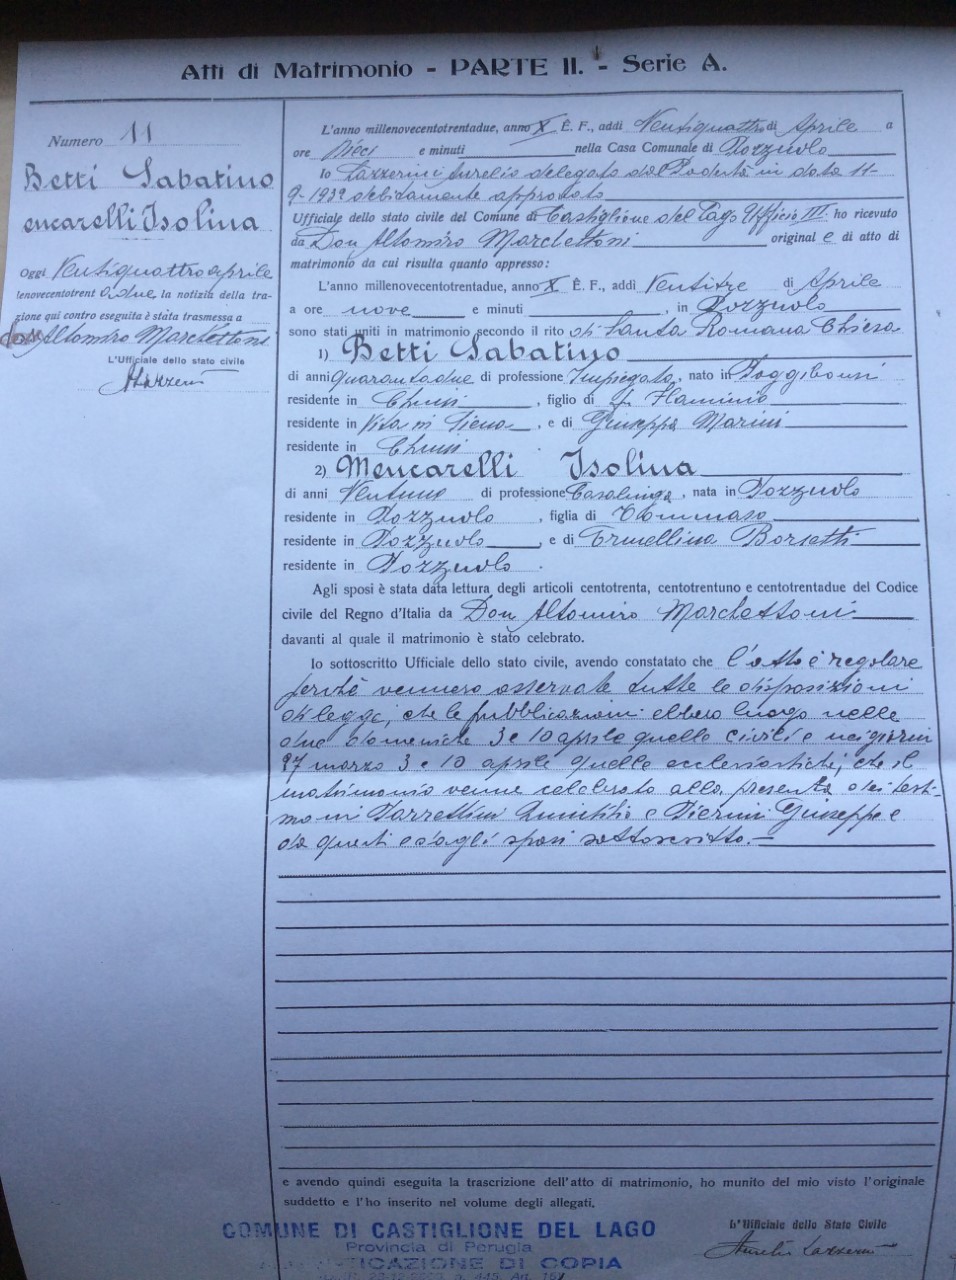 Atti di Matrimonio - PARTE II. - Serie A.
Numero 11
Betti Sabatino
encarelli Isolina
Oggi Ventiquattro aprile
lenovecentotrent adue la notizia della tra-
zione qui contro eseguita è stata trasmessa a
don Altomiro Marchettoni
L'Ufficiale dello stato civile
ALazzerini
L'anno millenovecentotrentadue, anno X E. F., addi Ventiquattro di Aprile a
ore Dieci e minuti nella Casa Comunale di Pozzuolo
Io Lazzerini Aurelio delegato dal Podestà in data 11-
9-1932 debitamente approvato
Ufficiale dello stato civile del Comune di Castiglione del Lago Ufficio III ho ricevuto
da Don Altomiro Marchettoni original e di atto di
matrimonio da cui risulta quanto appresso:
L'anno millenovecentotrentadue, anno X E. F., addi Ventitre di Aprile
a ore nove e minuti , in Pozzuolo
sono stati uniti in matrimonio secondo il rito di Santa Romana Chiesa
1) Betti Sabatino
di anni Quarantadue di professione Impiegato, nato in Poggibonsi
residente in Chiusi , figlio di f. Flaminio
residente in Vita in Siena , e di Giuseppa Marini
residente in Chiusi .
2) Mencarelli Isolina
di anni Ventuno di professione Casalinga, nata in Pozzuolo
residente in Pozzuolo , figlia di Tommaso
residente in Pozzuolo , e di Ermellina Borsetti
residente in Pozzuolo .
Agli sposi è stata data lettura degli articoli centotrenta, centotrentuno e centotrentadue del Codice
civile del Regno d'Italia da Don Altomiro Marchettoni
davanti al quale il matrimonio è stato celebrato.
Io sottoscritto Ufficiale dello stato civile, avendo constatato che l'atto è regolare
perchè vennero osservate tutte le disposizioni
di legge, che le pubblicazioni ebbero luogo nelle
due domeniche 3 e 10 aprile quelle civili e nei giorni
27 marzo 3 e 10 aprile quelle ecclesiastiche, che il
matrimonio venne celebrato alla presenza dei testi-
moni Quintilio e Pierini Giuseppe e
da questi e dagli sposi sottoscritto.-
e avendo quindi eseguita la trascrizione dell'atto di matrimonio, ho munito del mio visto l'originale
suddetto e l'ho inserito nel volume degli allegati.
COMUNE DI CASTIGLIONE DEL LAGO
Provincia di Perugia
AUTENTICAZIONE DI COPIA
L'Ufficiale dello Stato Civile
Aurelio Lazzerini